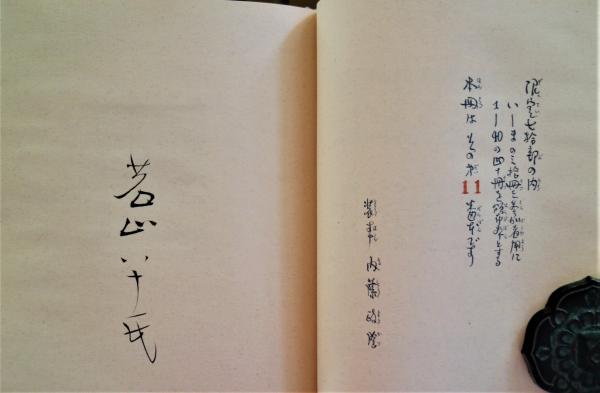 限定七拾部の内
い—まの三拾冊を参加者用に
1—40の四十冊を頒布本とする
本冊は その第11番本です
装本 内藤政勝
若山八十氏